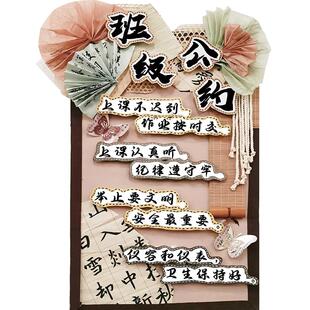 班级公约
上课不迟到
作业按时交
上课认真听
纪律遵守牢
举止要文明
安全最重要
仪容和仪表
卫生保持好